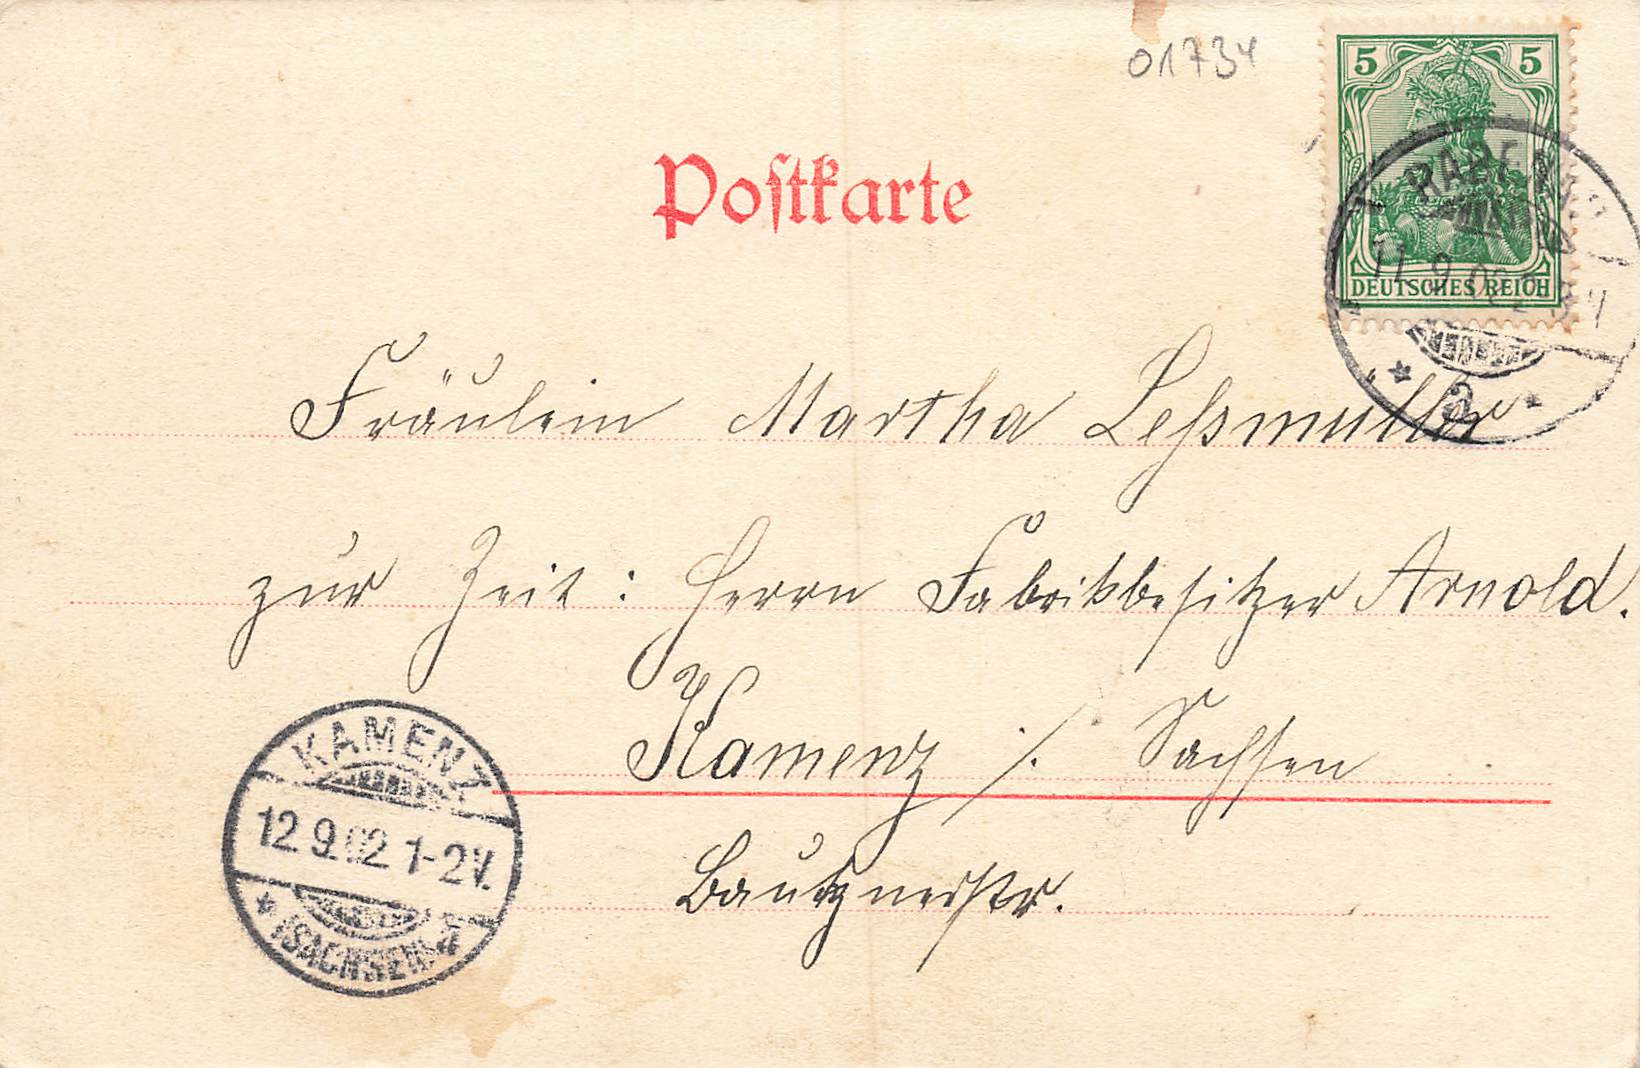 01734
5 5
Postkarte
DEUTSCHES REICH
RABENAU
11 9 02
Fräulein Martha Leßmüller
zur Zeit: Herrn Fabrikbesitzer Arnold.
Kamenz i. Sachsen
Bautznerstr.
KAMENZ
12 9.02 1-2V.
(SACHSEN)